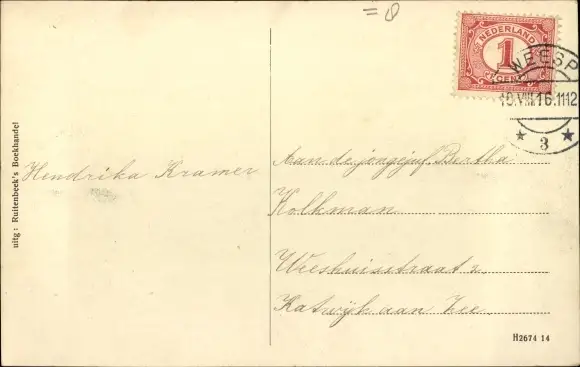 NEDERLAND
1
CENT
WEESP
10.VIII.16.11-12
3
uitg: Ruitenbeek's Boekhandel
Hendrika Kramer
Aan de jongejuf Bertha
Kolkman
Weeshuisstraat
Katwijk aan Zee
H2674 14